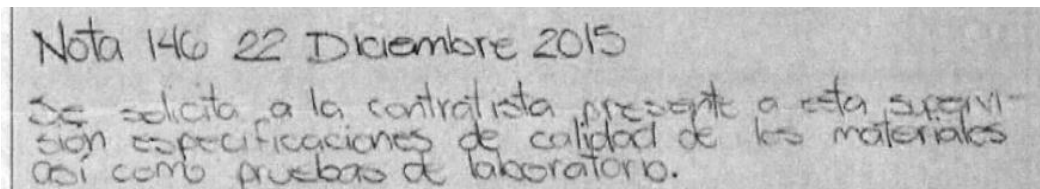 Nota 146 22 Diciembre 2015
Se solicita a la contratista presente a esta supervi-
sión especificaciones de calidad de los materiales
así como pruebas de laboratorio.